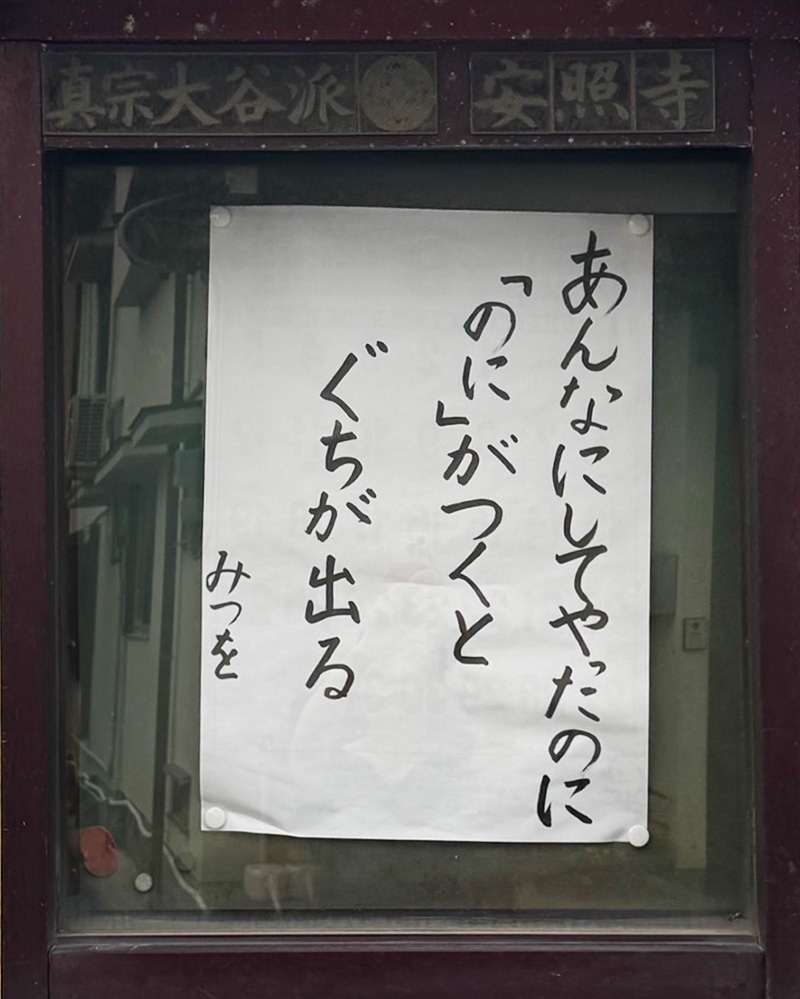 真宗大谷派 安照寺
あんなにしてやったのに
「のに」がつくと
ぐちが出る
みつを